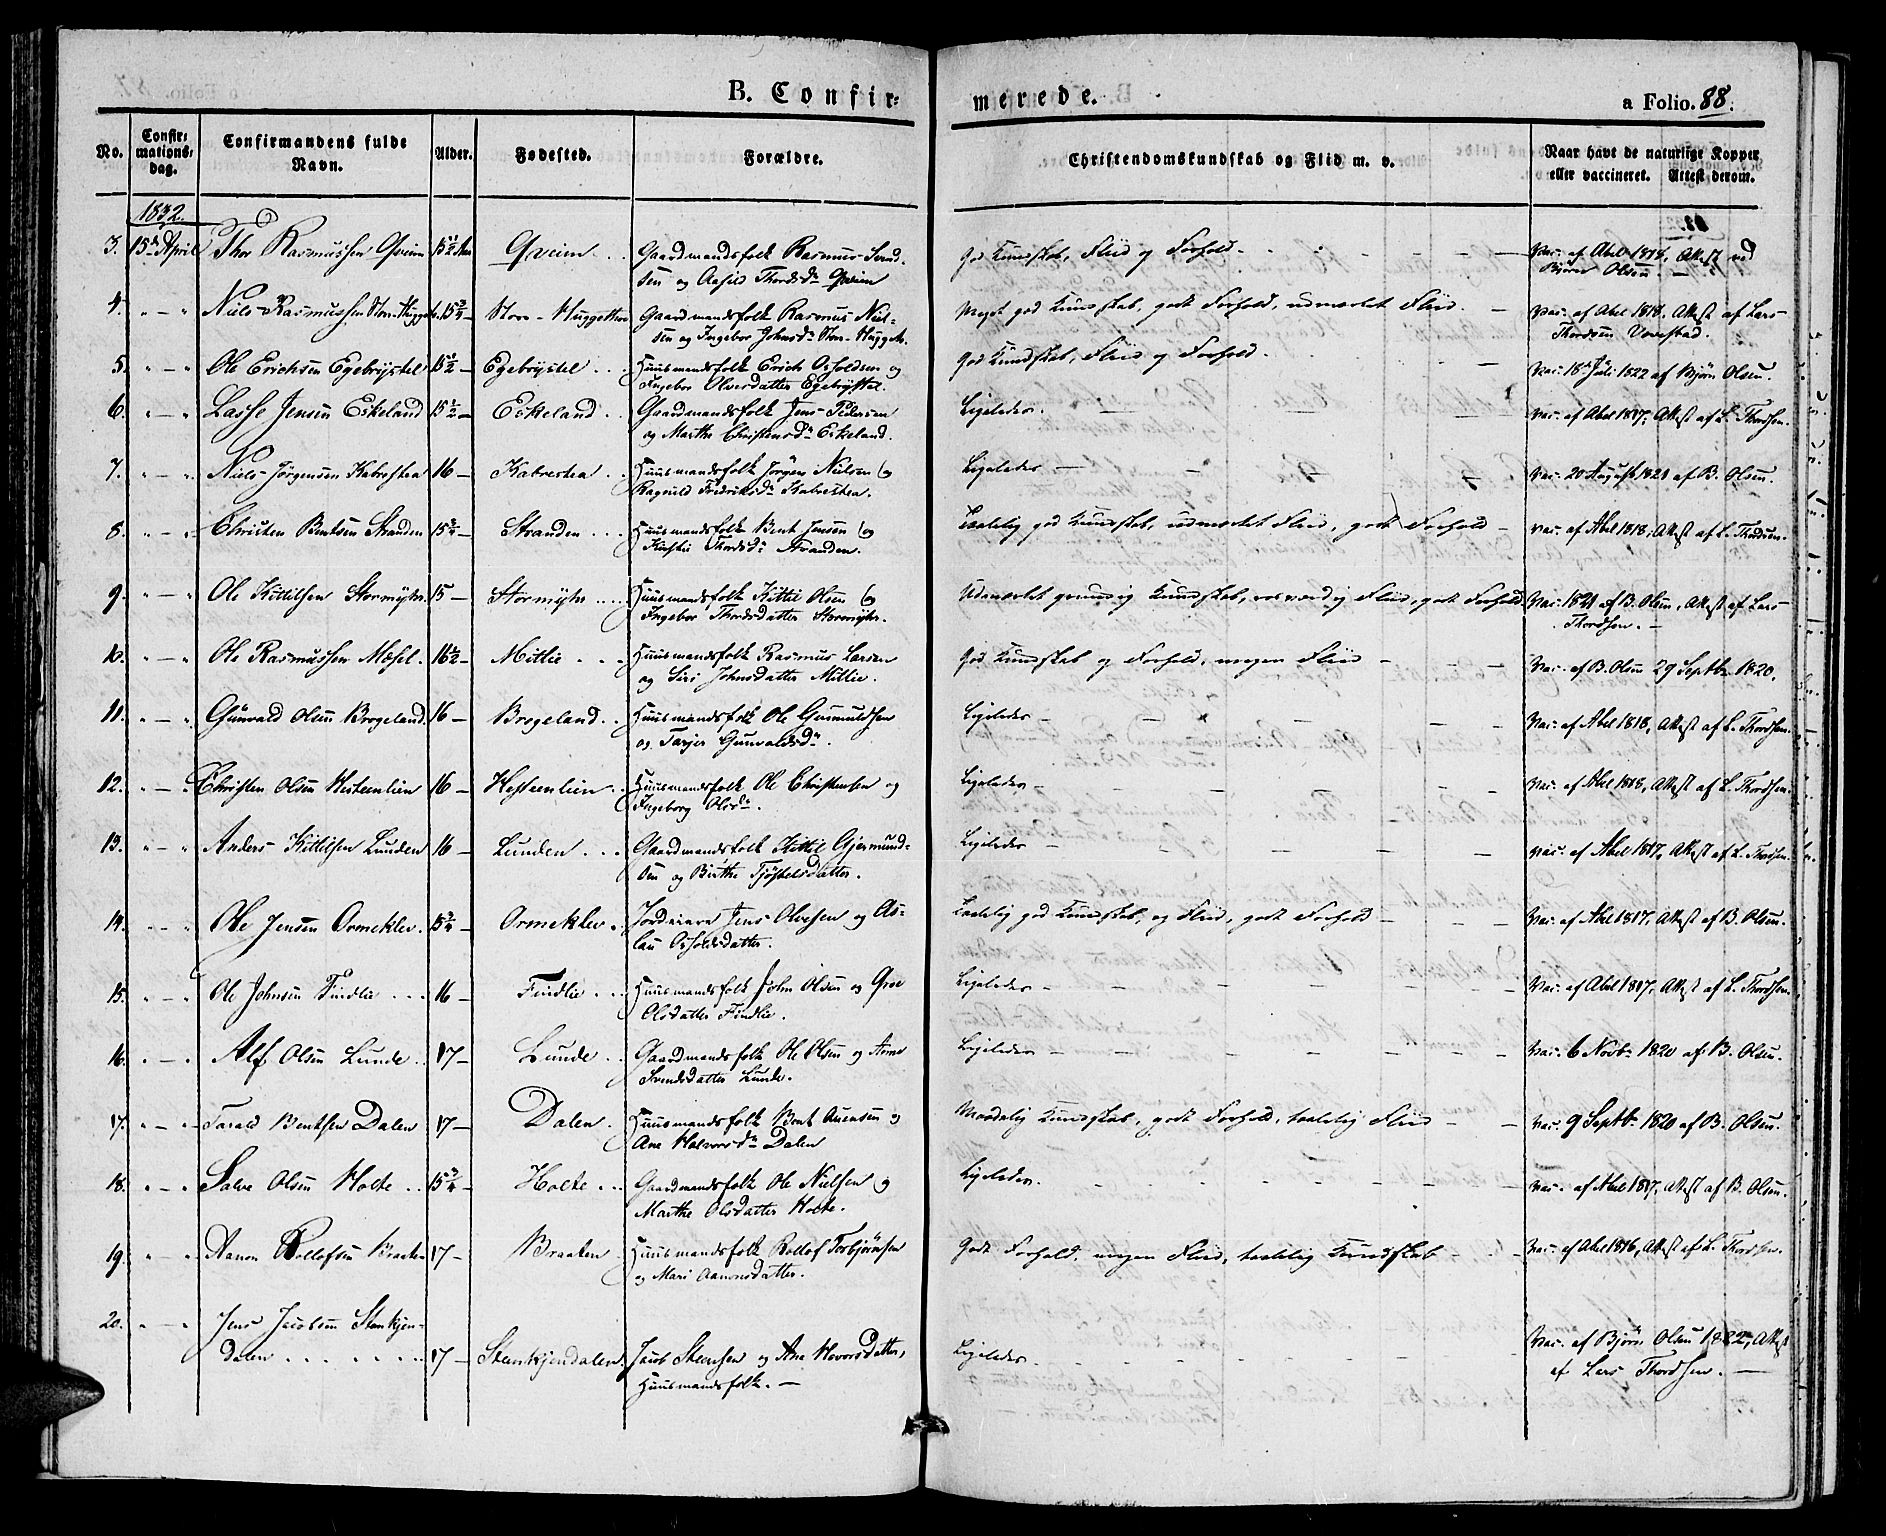 B. Confirmerede.
a Folio. 88.
No.
Confirmationsdag.
Confirmandens fulde Navn.
Alder.
Fødested.
Forældre.
Christendomskundskab og Flid m. v.
Naar havt de naturlige Kopper eller vaccineret. Attest derom.
1832.
3. 15de April Thor Rasmussen Qveim 15½ Qveim Gaardmandsfolk Rasmus Svend- God Kundskab, Fliid og Forhold. Vac. af Abel 1818, Attest ved
sen og Aasild Thordsdr Qveim Bjørn Olsen. —
4. " — " Niels Rasmussen Stor-Hugget 15¾ Stor-Huggetho Gaardmandsfolk Rasmus Niel- Meget god Kundskab, godt Forhold, udmærket Fliid. Vac. af Abel 1818, Attest af Lars
sen og Ingebor Johnsdr Stor-Huggeth. Thordsen Vovestad.
5. " — " Ole Erichsen Egebrystel 15½ — Egebrystel Huusmandsfolk Erich Osholdsen og God Kundskab, Fliid og Forhold. Vac. 18de Juli 1822 af Bjørn Olsen.
Ingebor Olversdatter Egebrystel.
6. " — " Lasse Jensen Eskeland 15½ — Eskeland Gaardmandsfolk Jens Pedersen Ligeledes. Vac. af Abel 1817, Attest af L. Thordsen.
og Marthe Christensdr Eskeland.
7. " — " Niels Jørgensen Kabrestea 16 — Kabrestea Huusmandsfolk Jørgen Nielsen og Ligeledes — Vac. 20 August 1821 af B. Olsen.
Ragnild Fredriksdr Kabrestea.
8. " — " Christen Bentsen Stranden 15¾ — Stranden Huusmandsfolk Bent Jensen og Taalelig god Kundskab, udmærket Fliid, godt Forhold — Vac. af Abel 1818, Attest af L. Thordsen.
Kirstie Thordsdr Stranden.
9. " — " Ole Kittilsen Stormyhr. 15 — Stormyhr Huusmandsfolk Kittil Olsen og Udmærket grundig Kundskab, rosværdig Fliid, godt Forhold Vac. 1821 af B. Olsen, Attest af Lars
Ingebor Thordsdatter Stormyhr. Thordsen. —
10. " — " Ole Rasmussen Mæsel. 16½ — Mittie Huusmandsfolk Rasmus Larsen God Kundskab og Forhold, megen Fliid — Vac. af B. Olsen 29 Septbr 1820.
og Siri Johnsdatter Mittie.
11. " — " Gunvald Olsen Brogeland. 16 — Brogeland Huusmandsfolk Ole Gumuldsen Ligeledes — Vac. af Abel 1818, Attest af L. Thordsen.
og Tarjer Gunvaldsdr.
12. " — " Christen Olsen Hesteenlien 16 — Hesteenlien Huusmandsfolk Ole Christensen og Ligeledes — Vac. af Abel 1818, Attest af L. Thordsen.
Ingeborg Olsdr.
13. " — " Anders Kittilsen Lunden 16 — Lunden Gaardmandsfolk Kittil Gjermund- Ligeledes — Vac. af Abel 1817, Attest af L. Thordsen.
sen og Birthe Tjøstelsdatter.
14. " — " Ole Jensen Ormeklev. 15¾ — Ormeklev Jordeiere Jens Olvesen og As- Taalelig god Kundskab, og Fliid, godt Forhold — Vac. af Abel 1817, Attest af B. Olsen.
lau Osholdsdatter.
15. " — " Ole Johnsen Findlie 16 — Findlie Huusmandsfolk John Olsen og Groe Ligeledes — Vac. af Abel 1817, Attest af L. Thordsen.
Olsdatter Findlie.
16. " — " Alf Olsen Lunde 17 — Lunde Gaardmandsfolk Ole Olsen og Anne Ligeledes — Vac. 6 Novbr 1820 af B. Olsen.
Svendsdatter Lunde.
17. " — " Tarald Bentsen Dalen 17 — Dalen Huusmandsfolk Bent Auensen og Maadelig Kundskab, godt Forhold, taalelig Fliid — Vac. 9 Septbr 1820 af B. Olsen.
Ane Halvorsdr Dalen
18. " — " Salve Olsen Holte 15¾ — Holte Gaardmandsfolk Ole Nielsen og Ligeledes. Vac. af Abel 1817, Attest af B. Olsen.
Marthe Olsdatter Holte.
19. " — " Aanon Rollefsen Braaten 17 — Braaten Huusmandsfolk Rollof Torbjørnsen Godt Forhold, megen Fliid, taalelig Kundskab — Vac. af Abel 1816, Attest af L. Thordsen.
og Mari Aanonsdatter.
20. " — " Jens Jacobsen Stenkjen-
dalen 17 — Stenkjendalen Jacob Steensen og Ane Hovorsdatter, Ligeledes. Vac. af Bjørn Olsen 1822, Attest
Huusmandsfolk. — af Lars Thordsen. —